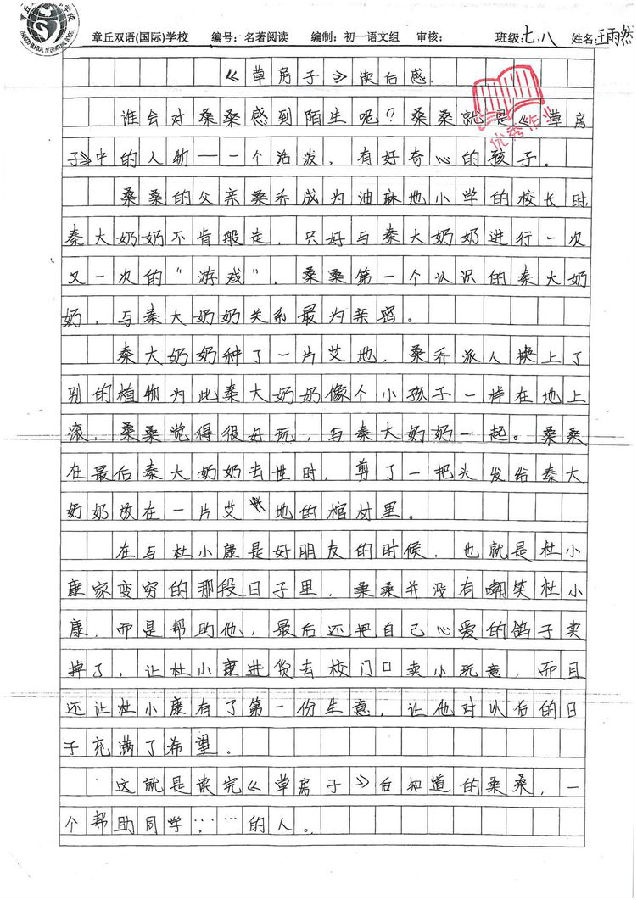 章丘双语(国际)学校 编号:名著阅读 编制:初一语文组 审核: 班级:七.八 姓名:王雨然
《草房子》读后感
优秀作业
谁会对桑桑感到陌生呢?桑桑就是《草房
子》中的人物——一个活泼,有好奇心的孩子.
桑桑的父亲桑乔成为油麻地小学的校长时
秦大奶奶不肯搬走,只好与秦大奶奶进行一次
又一次的“游戏”,桑桑第一个认识的秦大奶
奶,与秦大奶奶关系最为亲密。
秦大奶奶种了一片艾地,桑乔派人换上了
别的植物为此秦大奶奶像个小孩子一声在地上
滚,桑桑觉得很好玩,与秦大奶奶一起。桑桑
在最后秦大奶奶去世时,剪了一把头发给秦大
奶奶放在一片艾地的棺材里.
在与杜小康是好朋友的时候,也就是杜小
康家变穷的那段日子里,桑桑并没有嘲笑杜小
康,而是帮助他,最后还把自己心爱的鸽子卖
掉了,让杜小康进货去校门口卖小玩意,而且
还让杜小康有了第一份生意,让他对以后的日
子充满了希望。
这就是读完《草房子》后知道的桑桑,一
个帮助同学……的人。